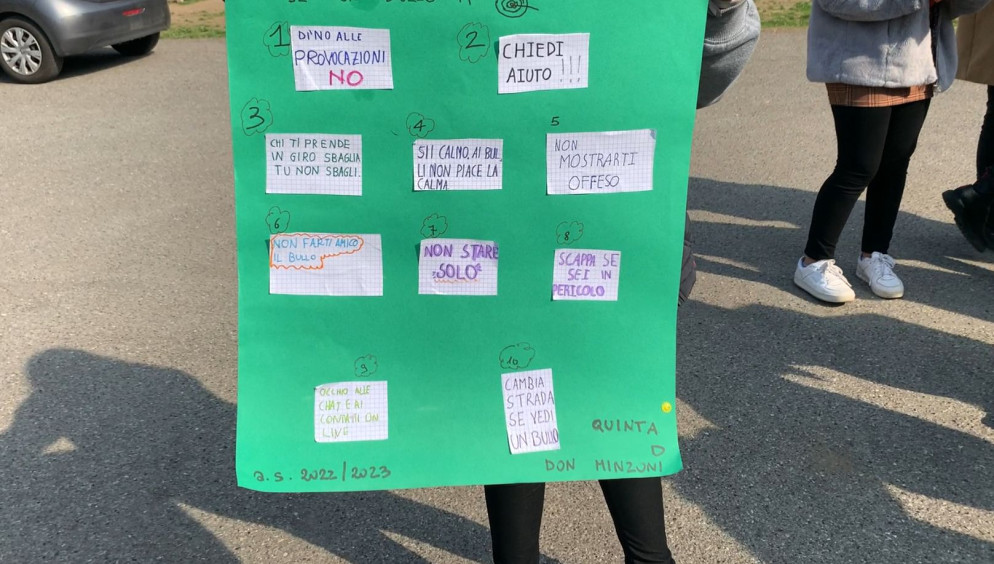 1
DI NO ALLE
PROVOCAZIONI
NO
2
CHIEDI
AIUTO !!!
3
CHI TI PRENDE
IN GIRO SBAGLIA
TU NON SBAGLI.
4
SII CALMO, AI BUL
LI NON PIACE LA
CALMA
5
NON
MOSTRARTI
OFFESO
6
NON FARTI AMICO
IL BULLO
7
NON STARE
"SOLO"
8
SCAPPA SE
SEI IN
PERICOLO
9
OCCHIO ALLE
CHAT E AI
CONTATTI ON
LINE
10
CAMBIA
STRADA
SE VEDI
UN BULLO
QUINTA
D
DON MINZUNI
a.s. 2022/2023